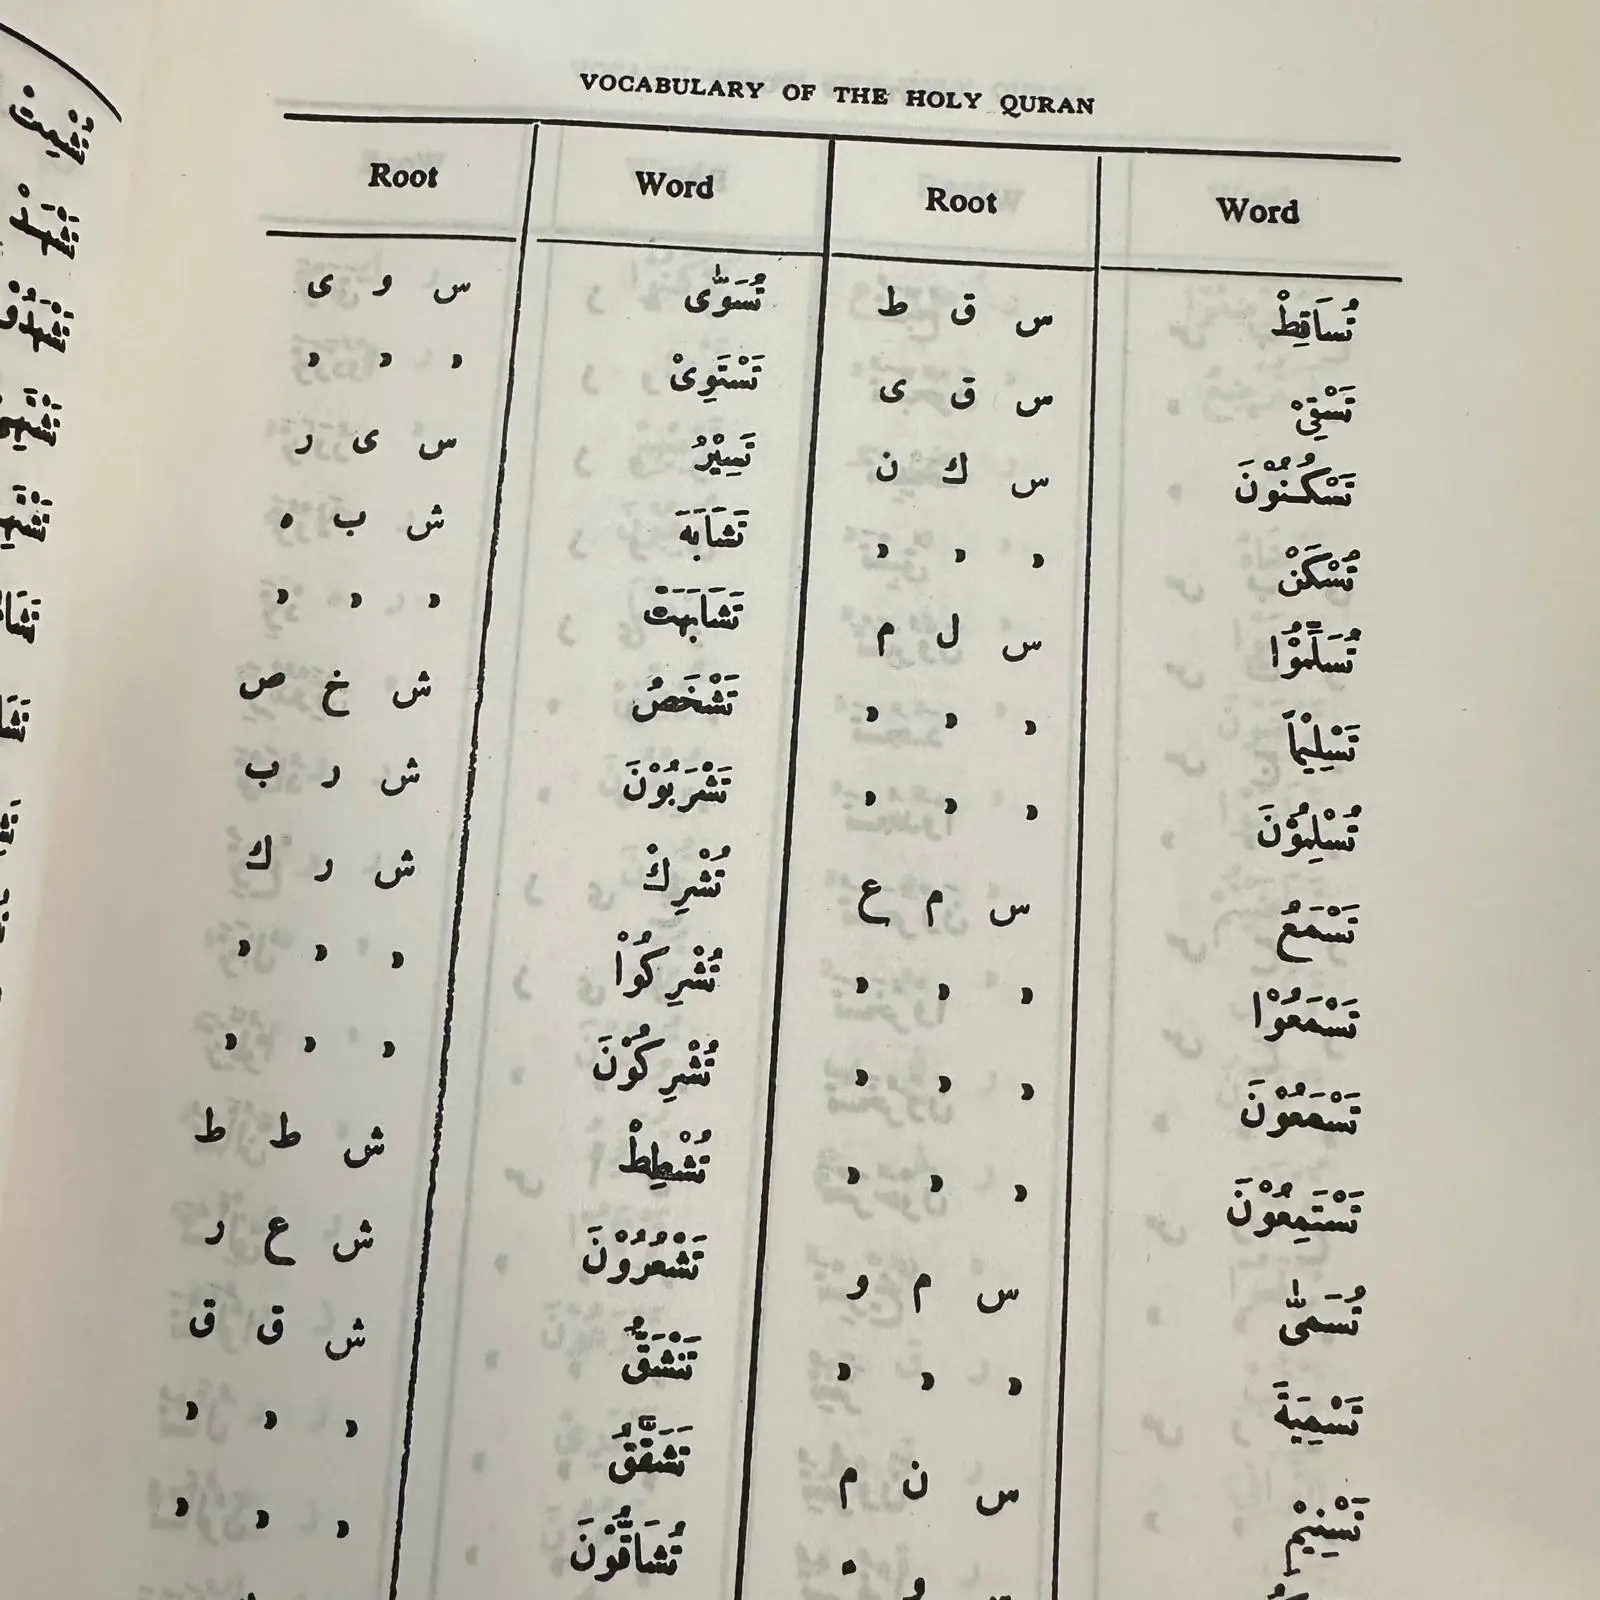 VOCABULARY OF THE HOLY QURAN
Word Root Word Root
تُسَاقِطْ س ق ط تُسَوّٰى س و ى
تَسْقِيْ س ق ى تَسْتَوِىْ " " "
تَسْكُنُوْنَ س ك ن تَسِيْرُ س ى ر
تُسْكَنْ " " " تَشَابَهَ ش ب ه
تُسَلِّمُوْا س ل م تَشَابَهَتْ " " "
تَسْلِيْمًا " " " تَشْخَصُ ش خ ص
تُسْلِمُوْنَ " " " تَشْرَبُوْنَ ش ر ب
تَسْمَعُ س م ع تُشْرِكْ ش ر ك
تَسْمَعُوْا " " " تُشْرِكُوْا " " "
تَسْمَعُوْنَ " " " تُشْرِكُوْنَ " " "
تَسْتَمِعُوْنَ " " " تُشْطِطْ ش ط ط
تُسَمّٰى س م و تَشْعُرُوْنَ ش ع ر
تَسْمِيَةَ " " " تَنْشَقُّ ش ق ق
تَسْنِيْمٍ س ن م تَشَقَّقُ " " "
تُشَاقُّوْنَ " " "